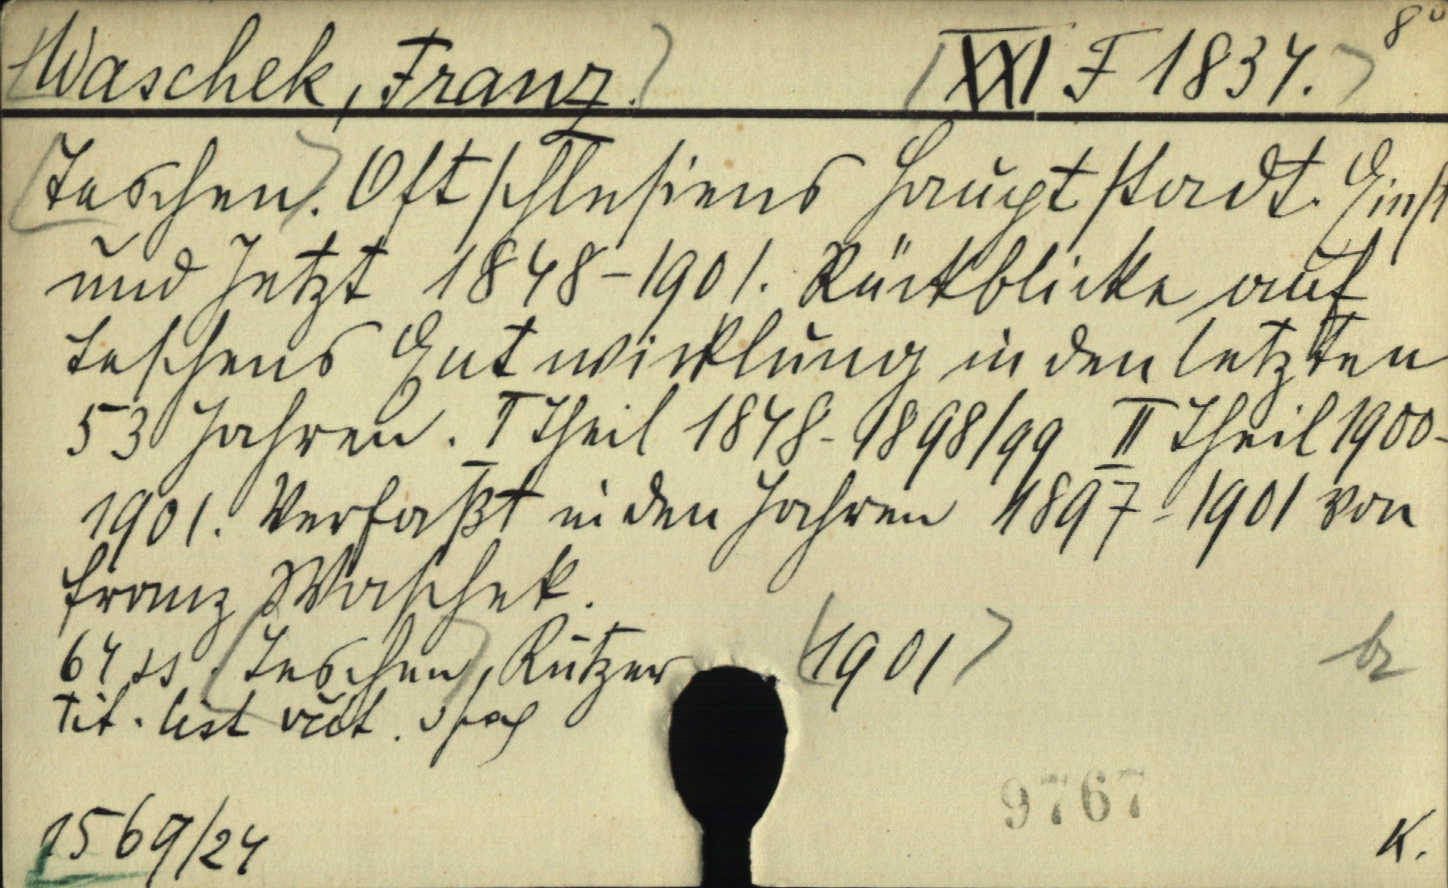 Waschek, Franz.
XXI F 1834. 8°
Teschen. Ostschlesiens Hauptstadt. Einst
und Jetzt 1848-1901. Rückblicke auf
Teschens Entwicklung in den letzten
53 Jahren. I Theil 1848-1898/99 II Theil 1900-
1901. Verfaßt in den Jahren 1897-1901 von
Franz Waschek.
64 ss. Teschen, Kutzer (1901)
tit. list
br
9767
1569/24
K.